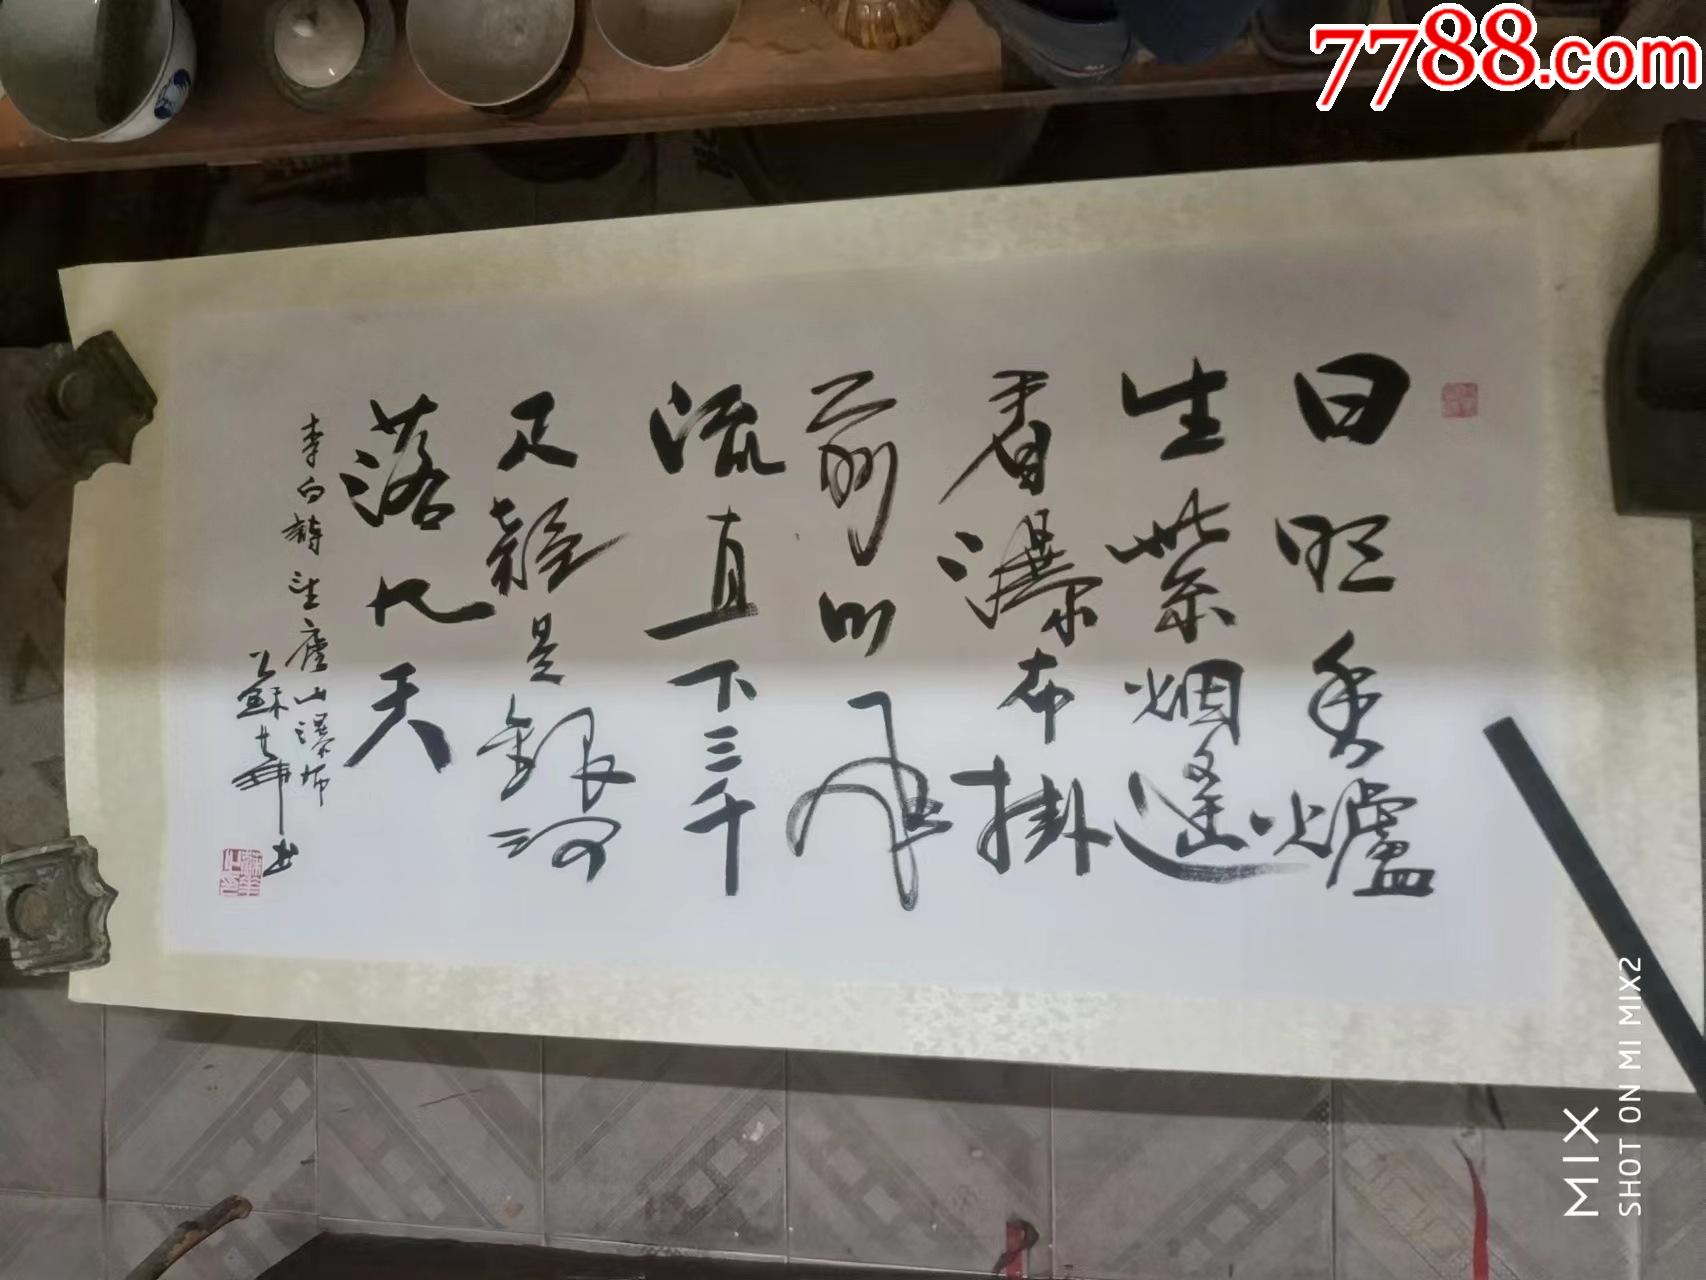 日照香爐
生紫烟遙
看瀑布掛
前川飛
流直下三千
尺疑是銀河
落九天
李白詩望廬山瀑布
蘇士
7788.com
MIX
SHOT ON MI MIX2